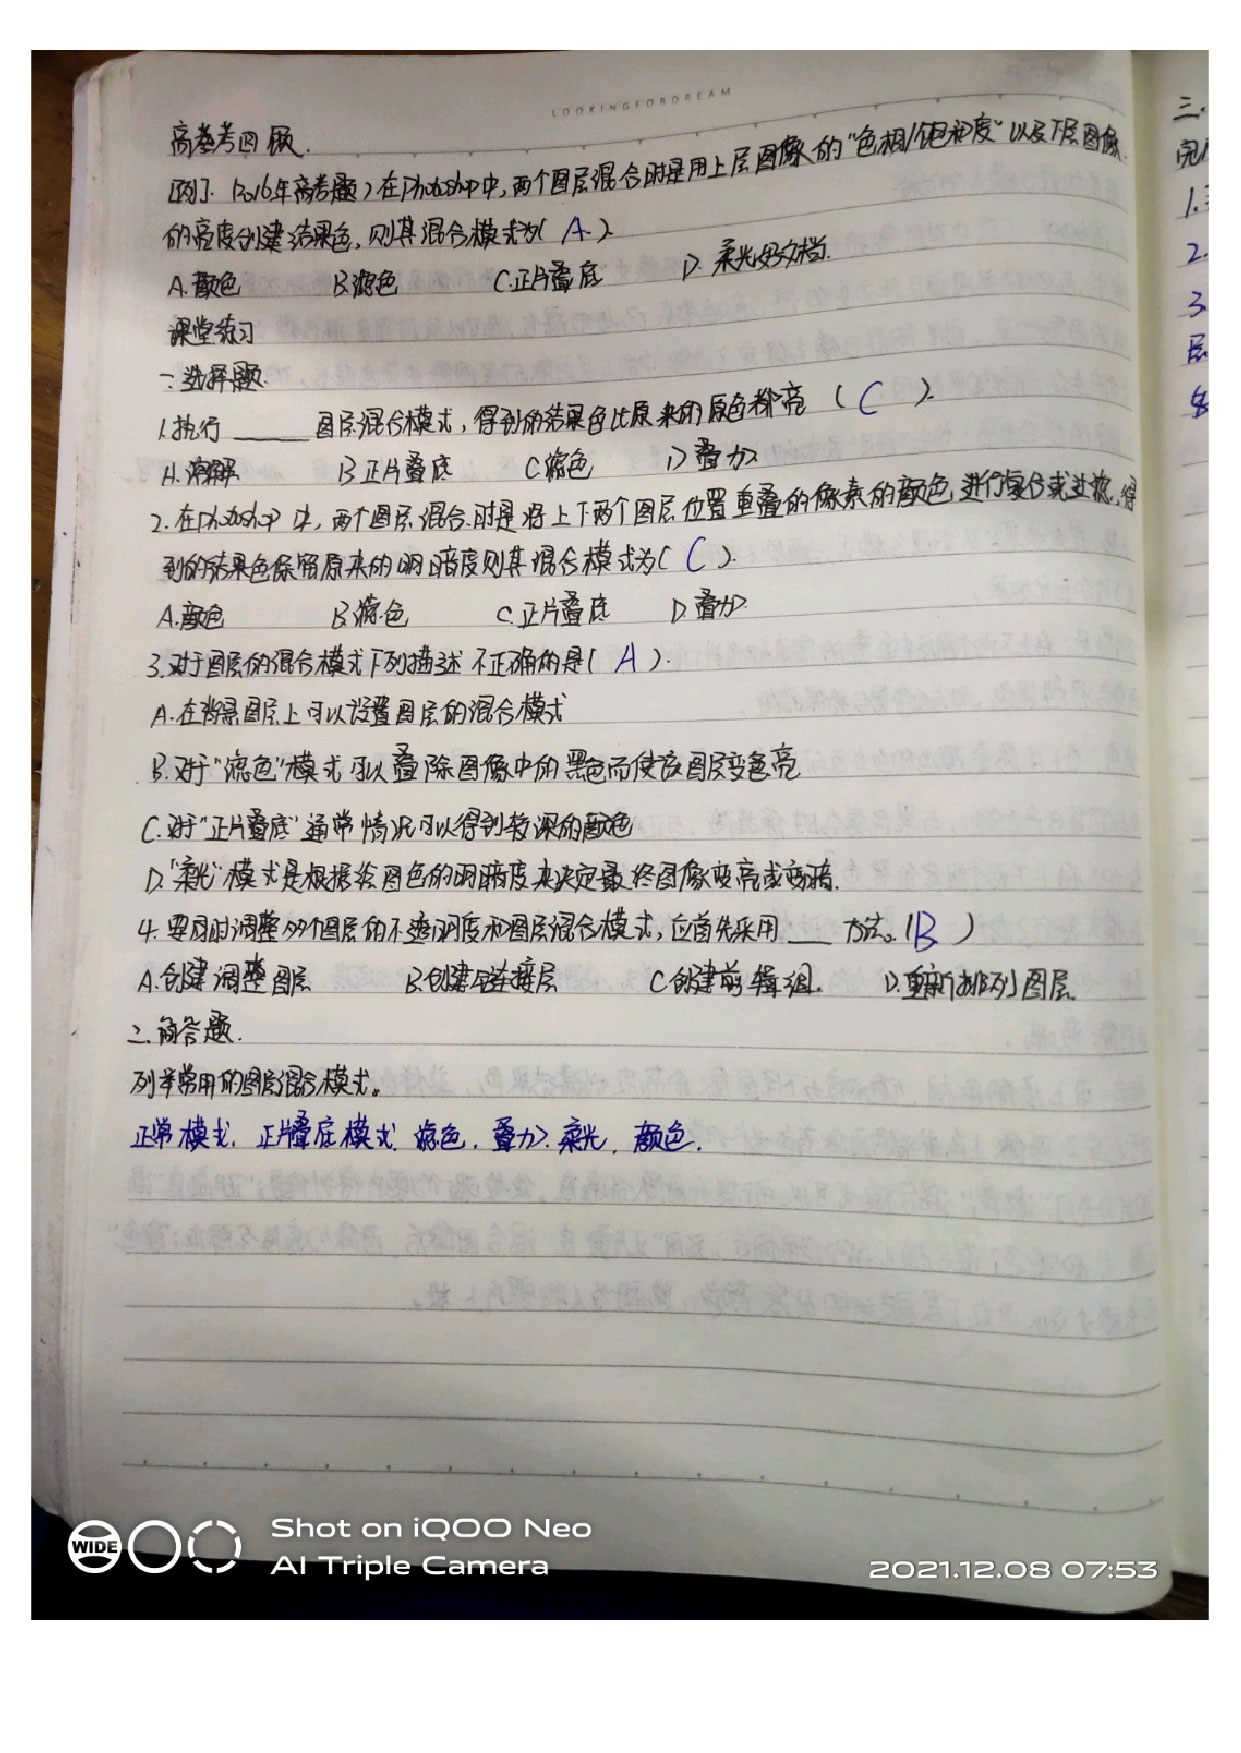 LOOKINGFORDREAM
高考考回顾.
[例]. (2016年高考题)在Photoshop中,两个图层混合时是用上层图像的"色相/饱和度"以及下层图像
的亮度创建结果色,则其混合模式为( A )
A.颜色 B.滤色 C.正片叠底 D.柔光
课堂练习
一.选择题.
1.执行 ____ 图层混合模式,得到的结果色比原来的原色都亮 ( C ).
A.溶解 B正片叠底 C滤色 D叠加
2.在Photoshop中,两个图层混合时是将上下两个图层位置重叠的像素的颜色进行复合或过滤,得
到的结果色保留原来的明暗度则其混合模式为( C ).
A.颜色 B.滤色 C.正片叠底 D叠加
3.对于图层的混合模式下列描述不正确的是( A ).
A.在背景图层上可以设置图层的混合模式
B.对于"滤色"模式可以叠除图像中的黑色而使该图层变色亮
C.对于"正片叠底"通常情况可以得到较深的颜色
D."柔光"模式是根据绘图色的明暗度来决定最终图像变亮或变暗.
4.要同时调整多个图层的不透明度和图层混合模式,应首先采用 __ 方法。(B )
A.创建调整图层 B.创建链接层 C创建剪辑组. D.重新排列图层
二.简答题.
列举常用的图层混合模式。
正常模式. 正片叠底模式. 滤色. 叠加. 柔光. 颜色.
三.
完
1.
2.
3.
层
WIDE
Shot on iQOO Neo
AI Triple Camera
2021.12.08 07:53